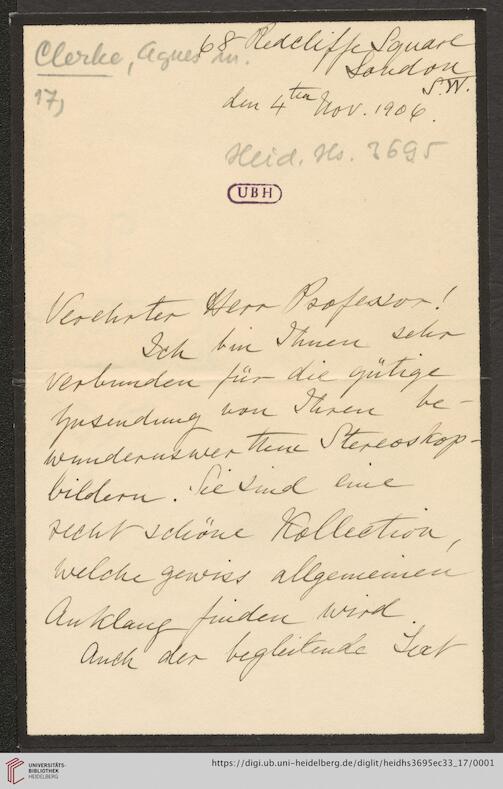 Clerke, Agnes M.
17)
68 Redcliffe Square
London
S.W.
den 4ten Nov. 1906.
Heid. Hs. 3695
UBH
Verehrter Herr Professor!
Ich bin Ihnen sehr
verbunden für die gütige
Zusendung von Ihren be-
wundernswerthene Stereoskop-
bildern. Sie sind eine
recht schöne Kollection,
welche gewiss allgemeinen
Anklang finden wird.
Auch der begleitende Text
UNIVERSITÄTS-
BIBLIOTHEK
HEIDELBERG
https://digi.ub.uni-heidelberg.de/diglit/heidhs3695ec33_17/0001